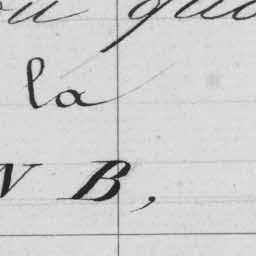 ou qu
la
N B,